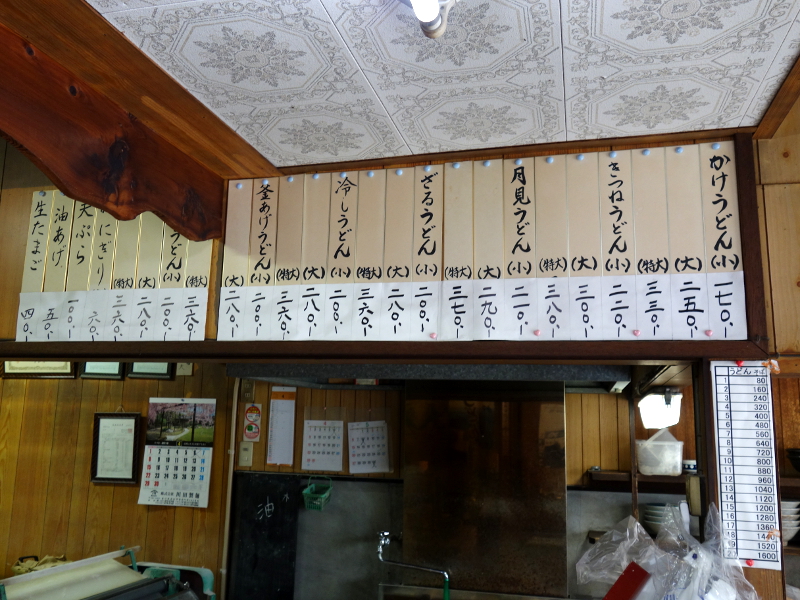 かけうどん(小) 一七〇、
(大) 二五〇、
(特大) 三三〇、
きつねうどん(小) 二二〇、
(大) 三〇〇、
(特大) 三八〇、
月見うどん(小) 二一〇、
(大) 二九〇、
(特大) 三七〇、
ざるうどん(小) 二〇〇、
(大) 二八〇、
(特大) 三六〇、
冷しうどん(小) 二〇〇、
(大) 二八〇、
(特大) 三六〇、
釜あげうどん(小) 二〇〇、
(大) 二八〇、
(特大) 三六〇、
うどん(小) 二〇〇、
(大) 二八〇、
(特大) 三六〇、
にぎり 六〇、
天ぷら 一〇〇、
油あげ 五〇、
生たまご 四〇、
うどんそば
1 80
2 160
3 240
4 320
5 400
6 480
7 560
8 640
9 720
10 800
11 880
12 960
13 1040
14 1120
15 1200
16 1280
17 1360
18 1440
19 1520
20 1600
油